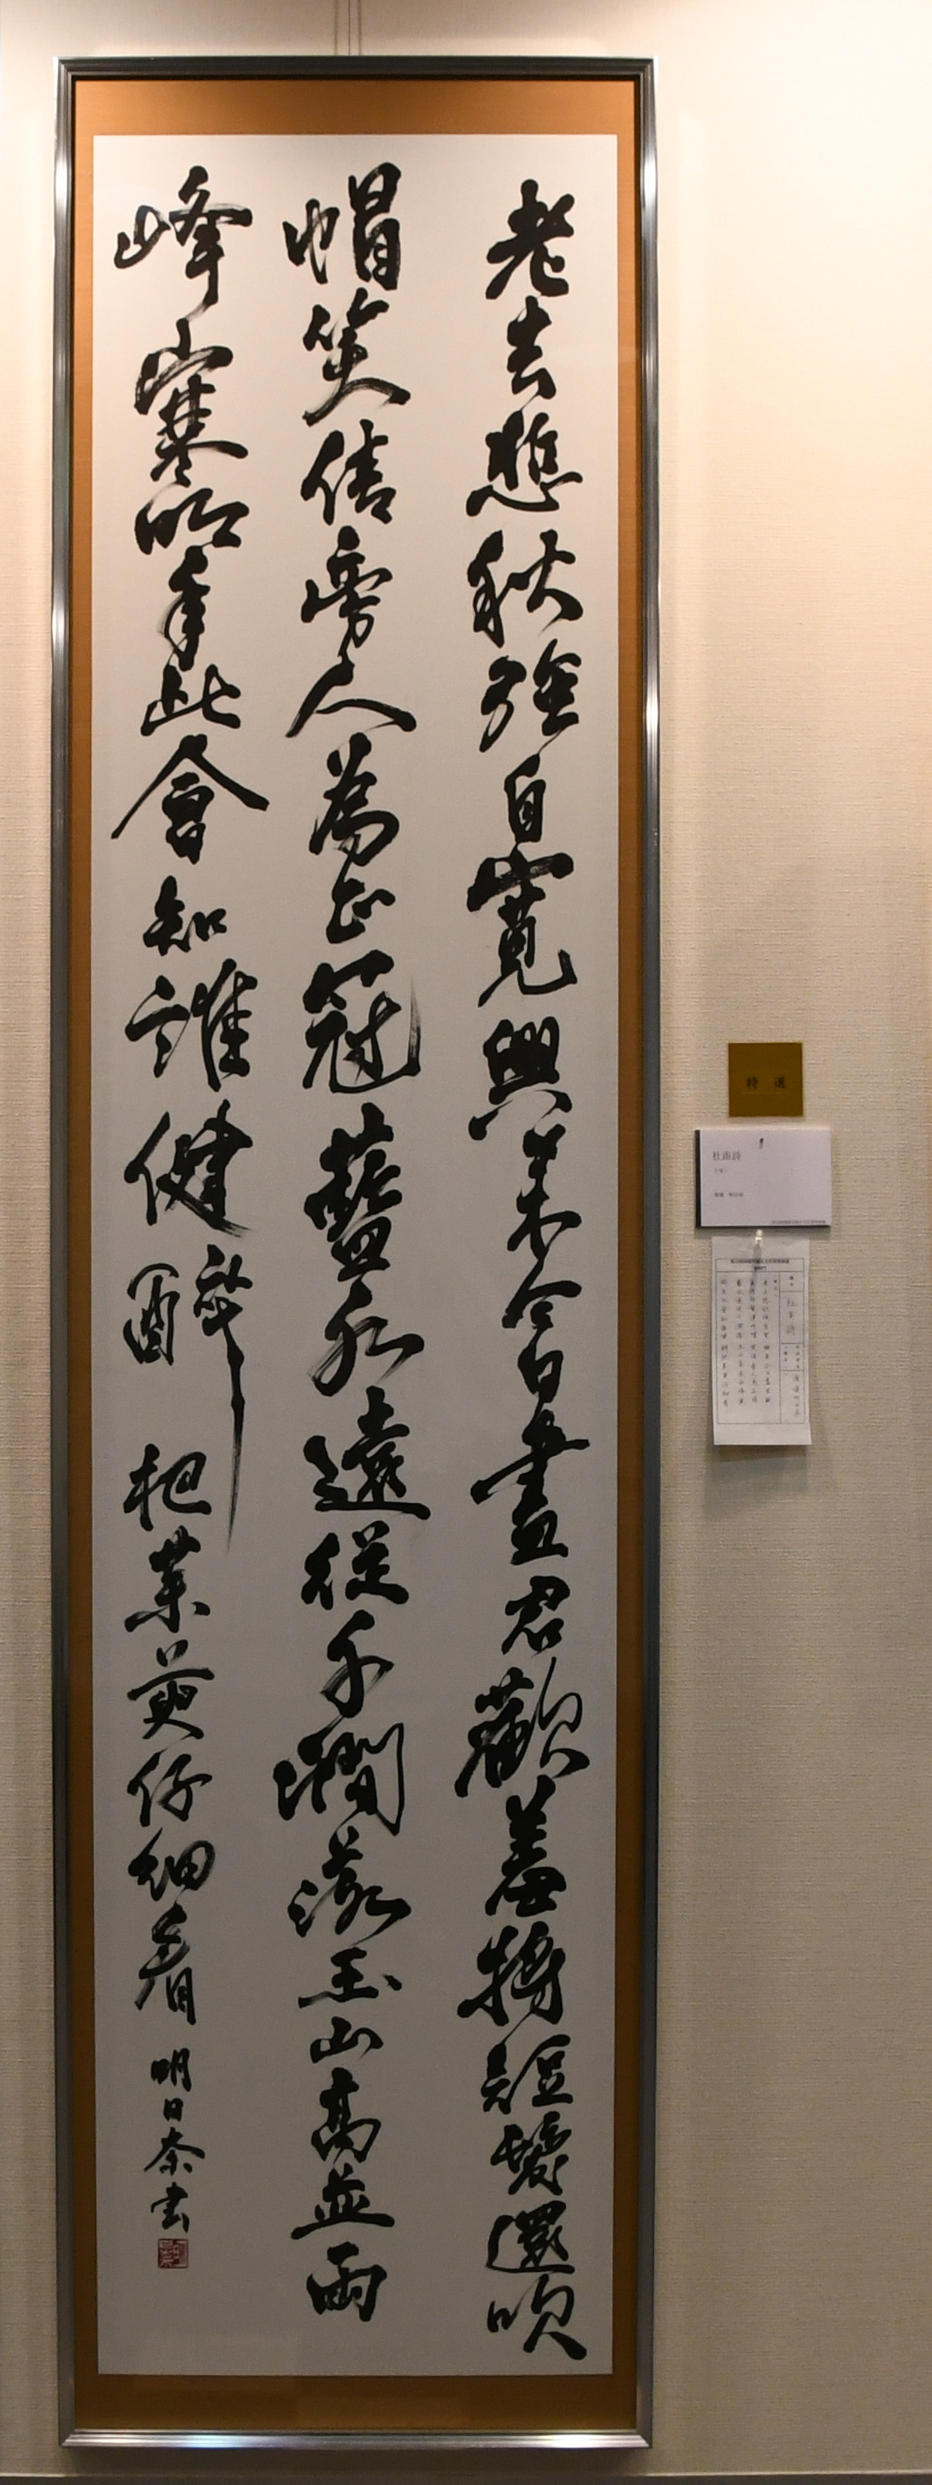 老去悲秋強自寛興来今日盡君歡羞将短髮還吹
帽笑倩旁人為正冠藍水遠從千澗落玉山高並両
峰寒明年此會知誰健醉把茱萸仔細看 明日奈書
特選
杜甫詩